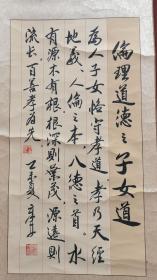 倫理道德之子女道
為人子女恪守孝道孝乃天經
地義人倫之本八德之首水
有源木有根根深則葉茂源遠則
流长百善孝為先